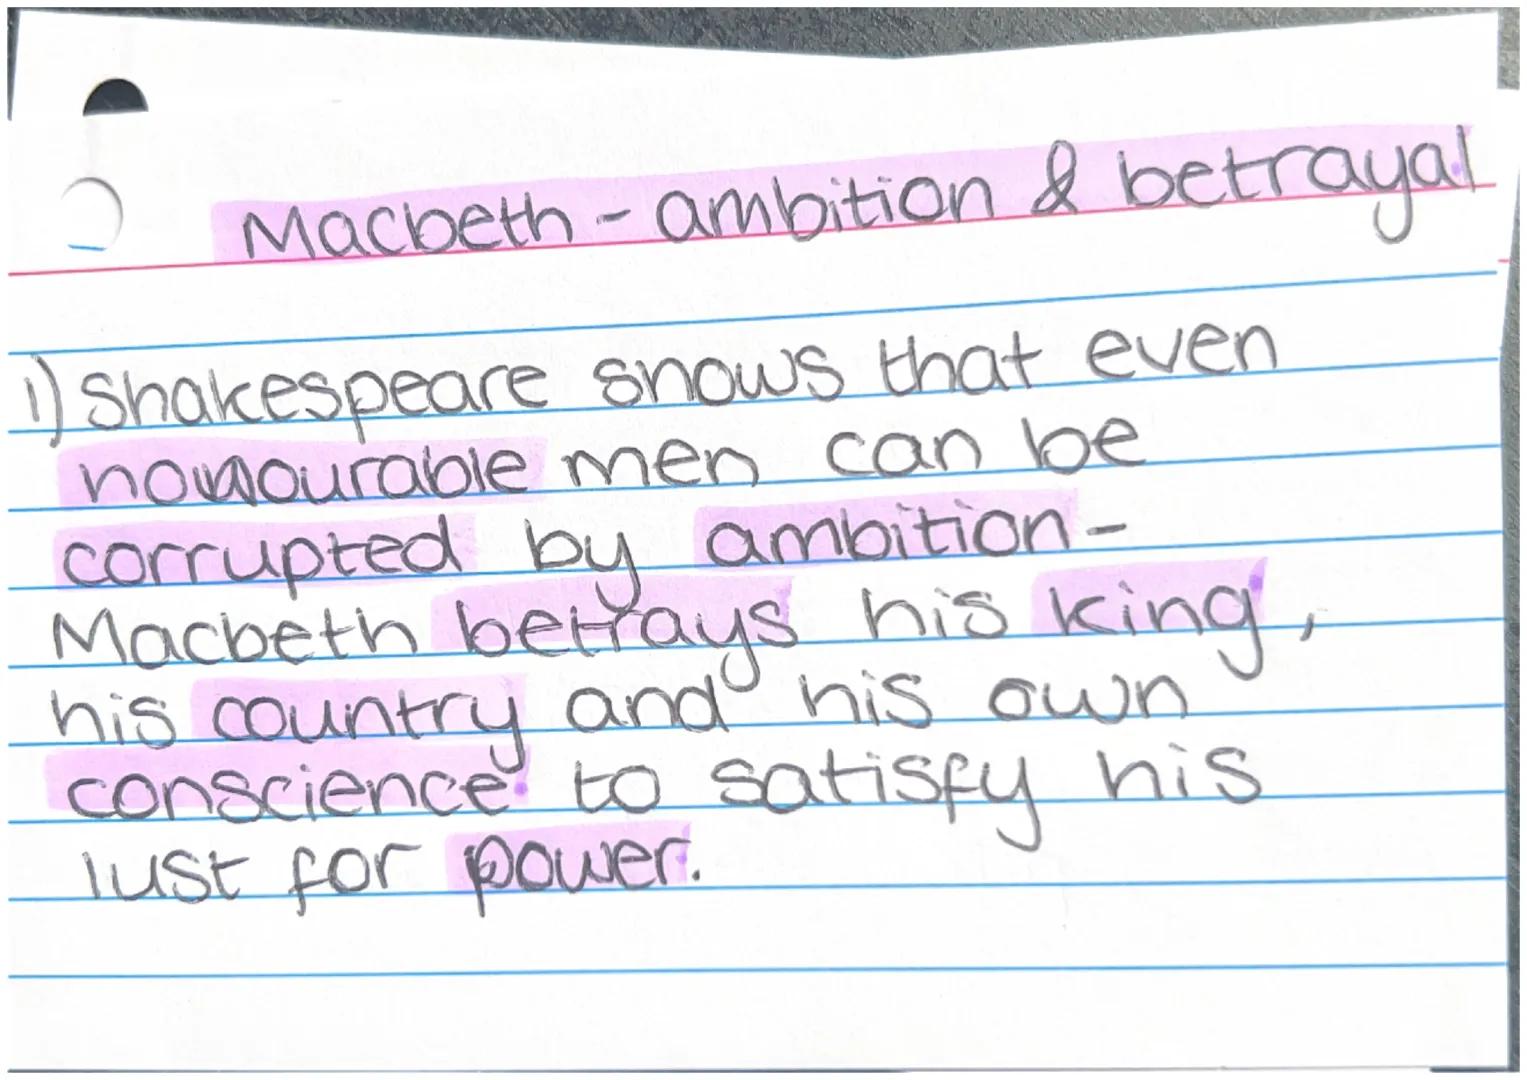 Macbeth - ambition & betrayal
1) Shakespeare shows that even
honourable men can be
corrupted by ambition-
Macbeth betrays his king,
his country and his own
conscience to satisfy his
lust for power.